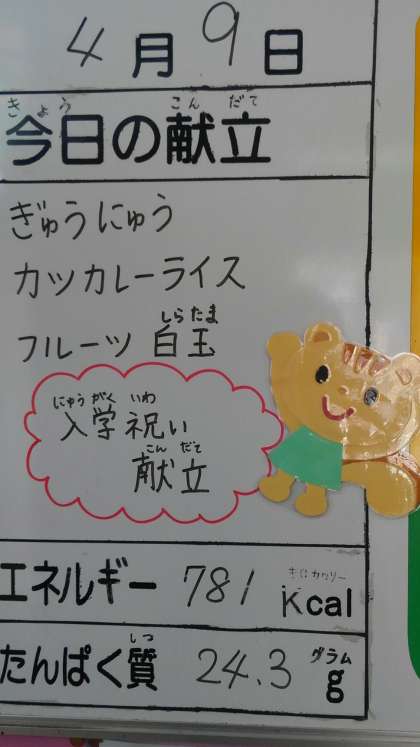 4月9日
きょう こんだて
今日の献立
ぎゅうにゅう
カツカレーライス
しらたま
フルーツ白玉
にゅうがく いわ
入学祝い
こんだて
献立
キロカロリー
エネルギー 781 Kcal
しつ グラム
たんぱく質 24.3 g